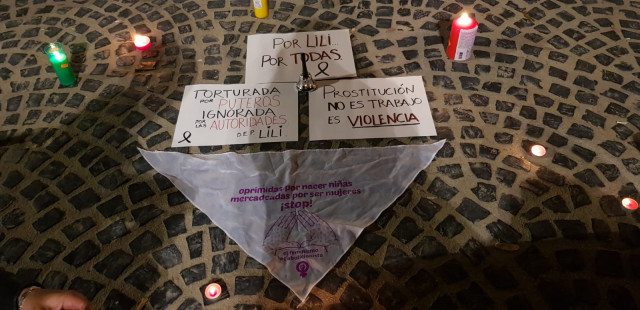 POR LILI
POR TODAS.
TORTURADA
POR PUTEROS
IGNORADA
POR LAS AUTORIDADES
D.E.P LILI
PROSTITUCIÓN
NO ES TRABAJO
ES VIOLENCIA
oprimidas por nacer niñas
mercadeadas por ser mujeres
¡stop!